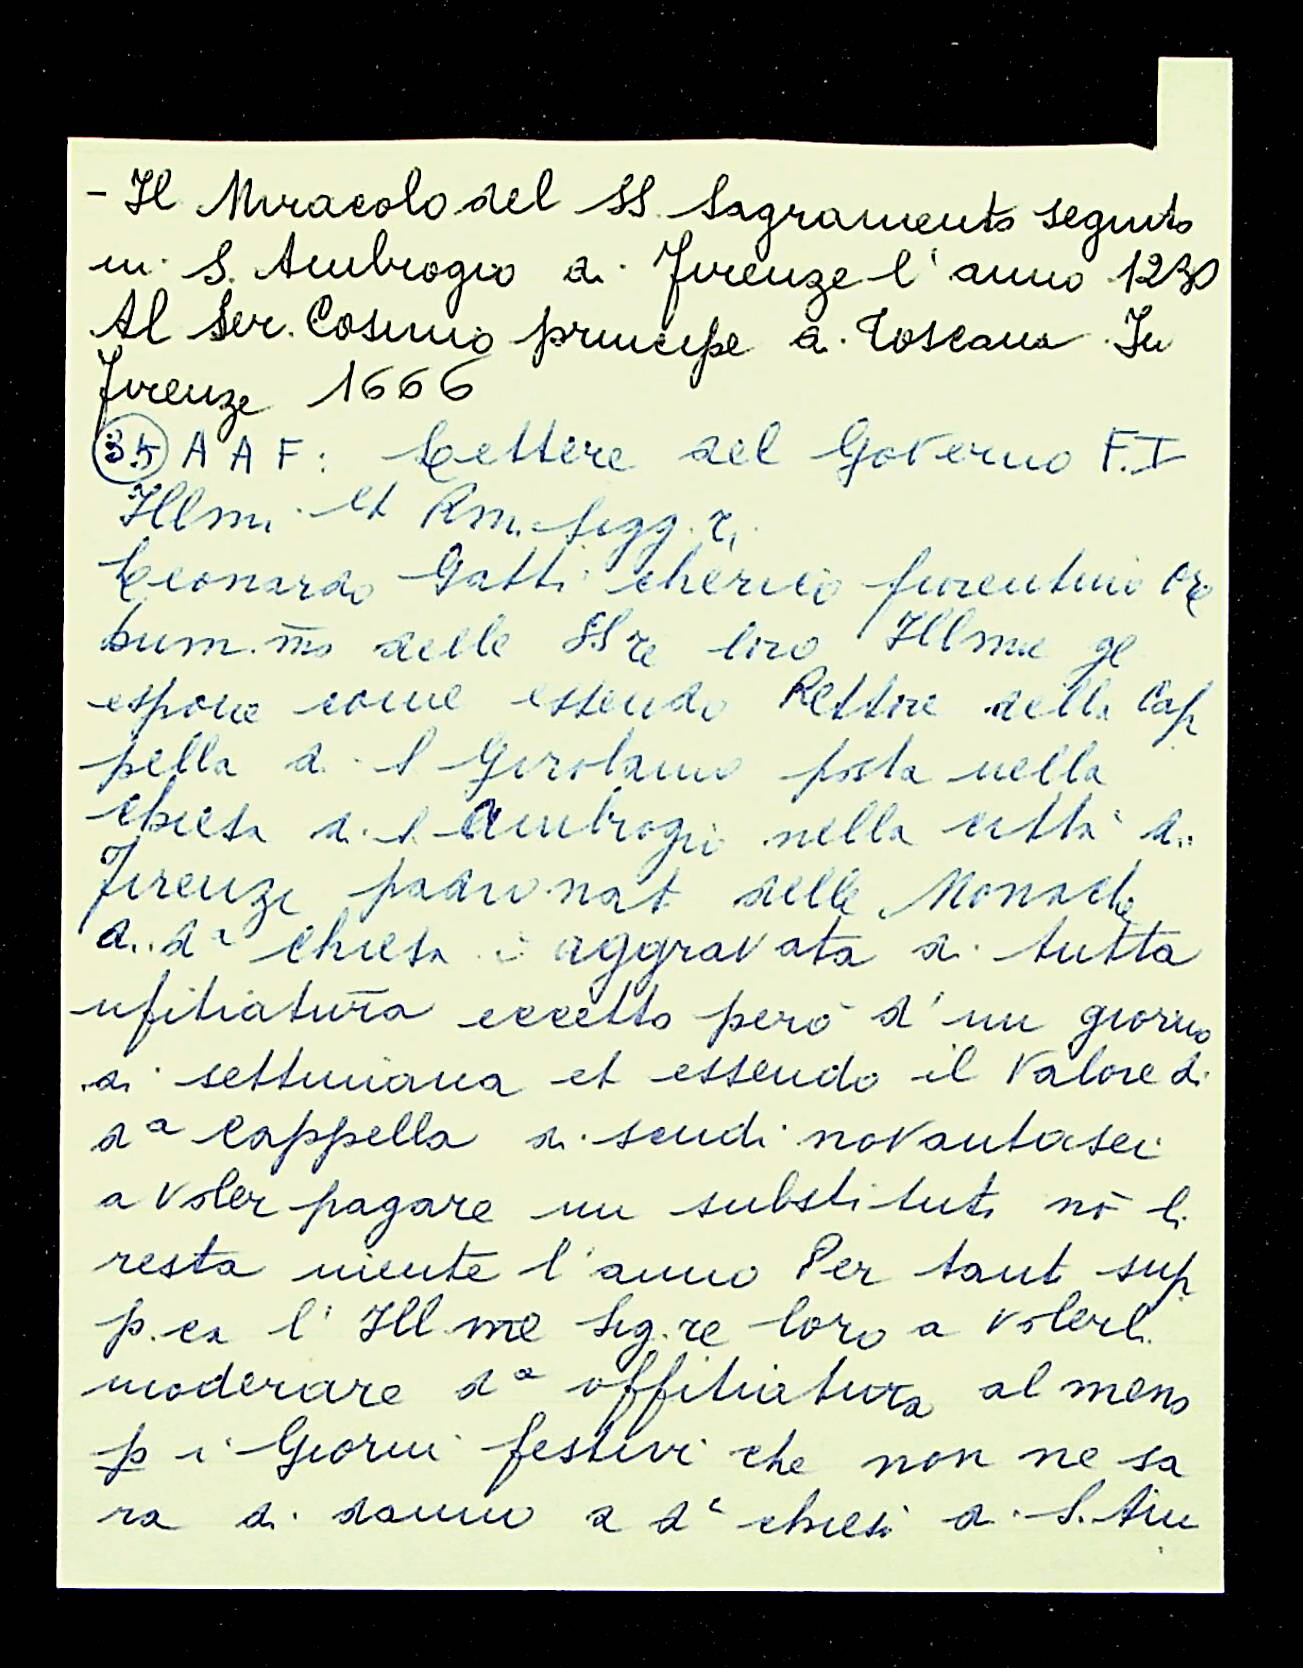 - Il Miracolo del SS. Sagramento seguito
in S. Ambrogio di Firenze l'anno 1230
Al Ser. Cosimo principe di Toscana. In
Firenze 1666
(35) A A F: Lettere del Governo F. I
Illmi et Rm. Sigg.ri
Leonardo Gatti cherico fiorentino
hum.mo delle SS.re loro Illme gl
espone come essendo Rettore della Cap
pella di S Girolamo posta nella
chiesa di S. Ambrogio nella città di
Firenze padronat. delle Monache
di da chiesa è aggravata di tutta
ufitiatura eccetto però d'un giorno
di settimana et essendo il valore di
da Cappella di scudi novantasei
a voler pagare un substituto nō li
resta niente l'anno Per tanto sup
p.ca l'Ill.me Sig.re loro a volerli
moderare da offitiatura al meno
p i Giorni festivi che non ne sa
ra di danno a da chiesa di S. Am